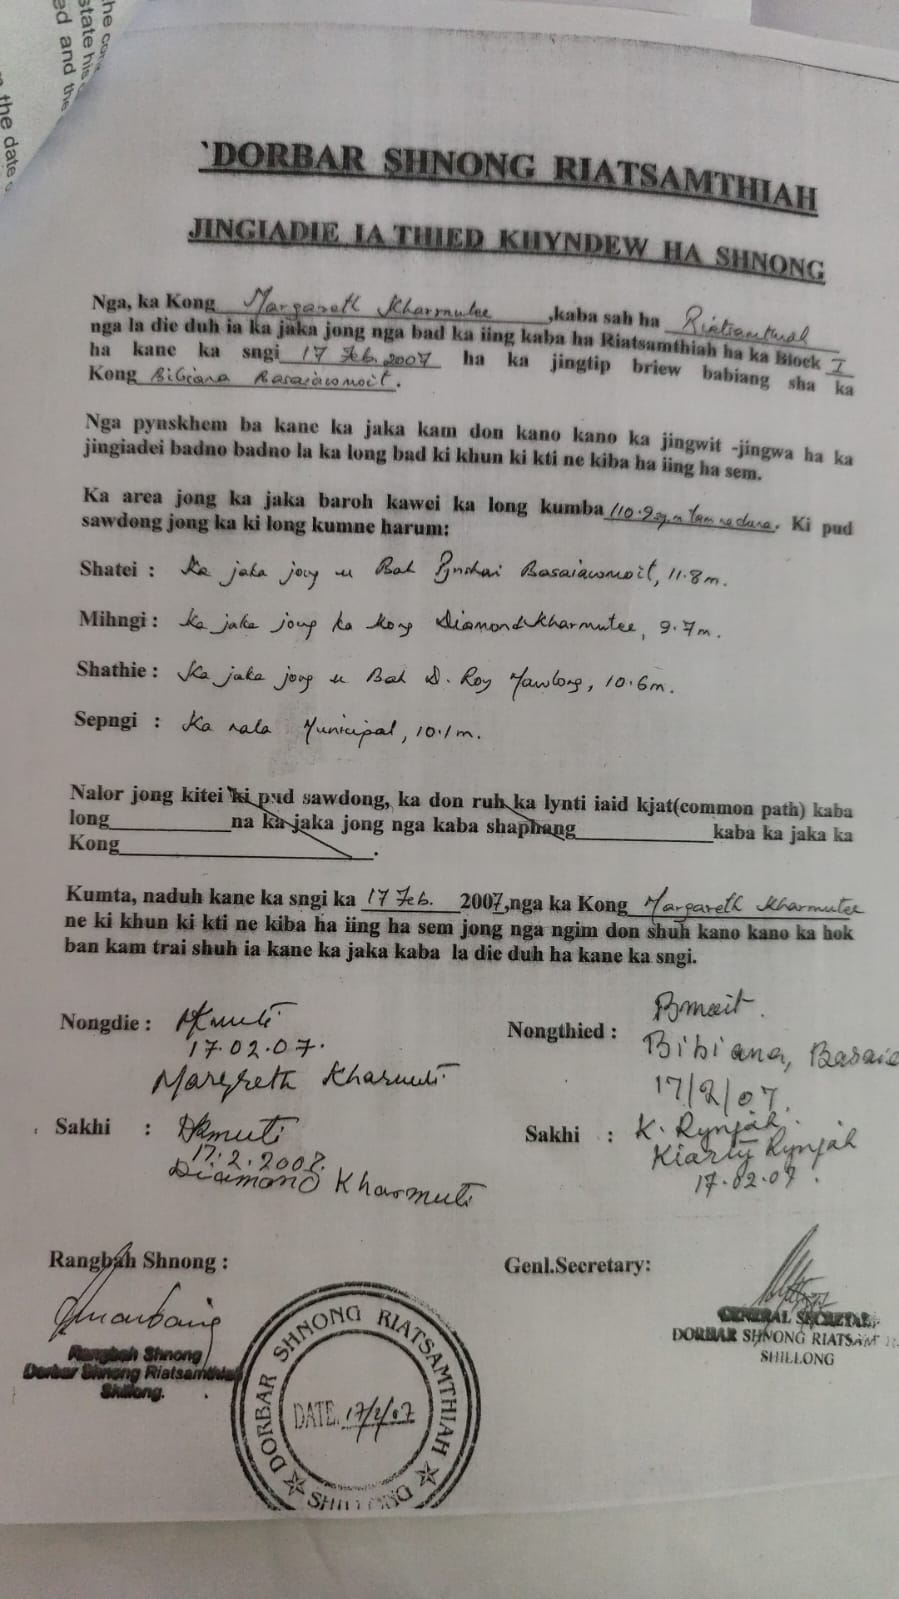 the con
state his
ed and the
the date
`DORBAR SHNONG RIATSAMTHIAH
JINGIADIE IA THIED KHYNDEW HA SHNONG
Nga, ka Kong Margareth Kharmutee ,kaba sah ha Riatsamthiah
nga la die duh ia ka jaka jong nga bad ka iing kaba ha Riatsamthiah ha ka Block I
ha kane ka sngi 17 Feb. 2007 ha ka jingtip briew babiang sha ka
Kong Bibiana Basaiawmoit.
Nga pynskhem ba kane ka jaka kam don kano kano ka jingwit -jingwa ha ka
jingiadei badno badno la ka long bad ki khun ki kti ne kiba ha iing ha sem.
Ka area jong ka jaka baroh kawei ka long kumba 110.9 sq.m. Ki pud
sawdong jong ka ki long kumne harum:
Shatei : Ka jaka jong u Bah Pynshai Basaiawmoit, 11.8m.
Mihngi : Ka jaka jong ka Kong Diamond Kharmutee, 9.7m.
Shathie : Ka jaka jong u Bah D. Roy Mawlong, 10.6m.
Sepngi : Ka nala Municipal, 10.1m.
Nalor jong kitei ki pud sawdong, ka don ruh ka lynti iaid kjat(common path) kaba
long____________na ka jaka jong nga kaba shaphang______________kaba ka jaka ka
Kong_________________________.
Kumta, naduh kane ka sngi ka 17 Feb. 2007,nga ka Kong Margareth Kharmutee
ne ki khun ki kti ne kiba ha iing ha sem jong nga ngim don shuh kano kano ka hok
ban kam trai shuh ia kane ka jaka kaba la die duh ha kane ka sngi.
Nongdie : MKmuti
17.02.07.
Margreth Kharmuti
Nongthied : Bmoit.
Bibiana, Basaia
17/2/07.
Sakhi : DKmuti
17.2.2007.
Diamond Kharmuti
Sakhi : K. Rynjah.
Kiarty Rynjah
17.02.07.
Rangbah Shnong :
Rangbah Shnong
Dorbar Shnong Riatsamthiah
Shillong.
DORBAR SHNONG RIATSAMTHIAH
DATE. 17/2/07
SHILLONG
Genl.Secretary:
GENERAL SECRETAR
DORBAR SHNONG RIATSAMT
SHILLONG